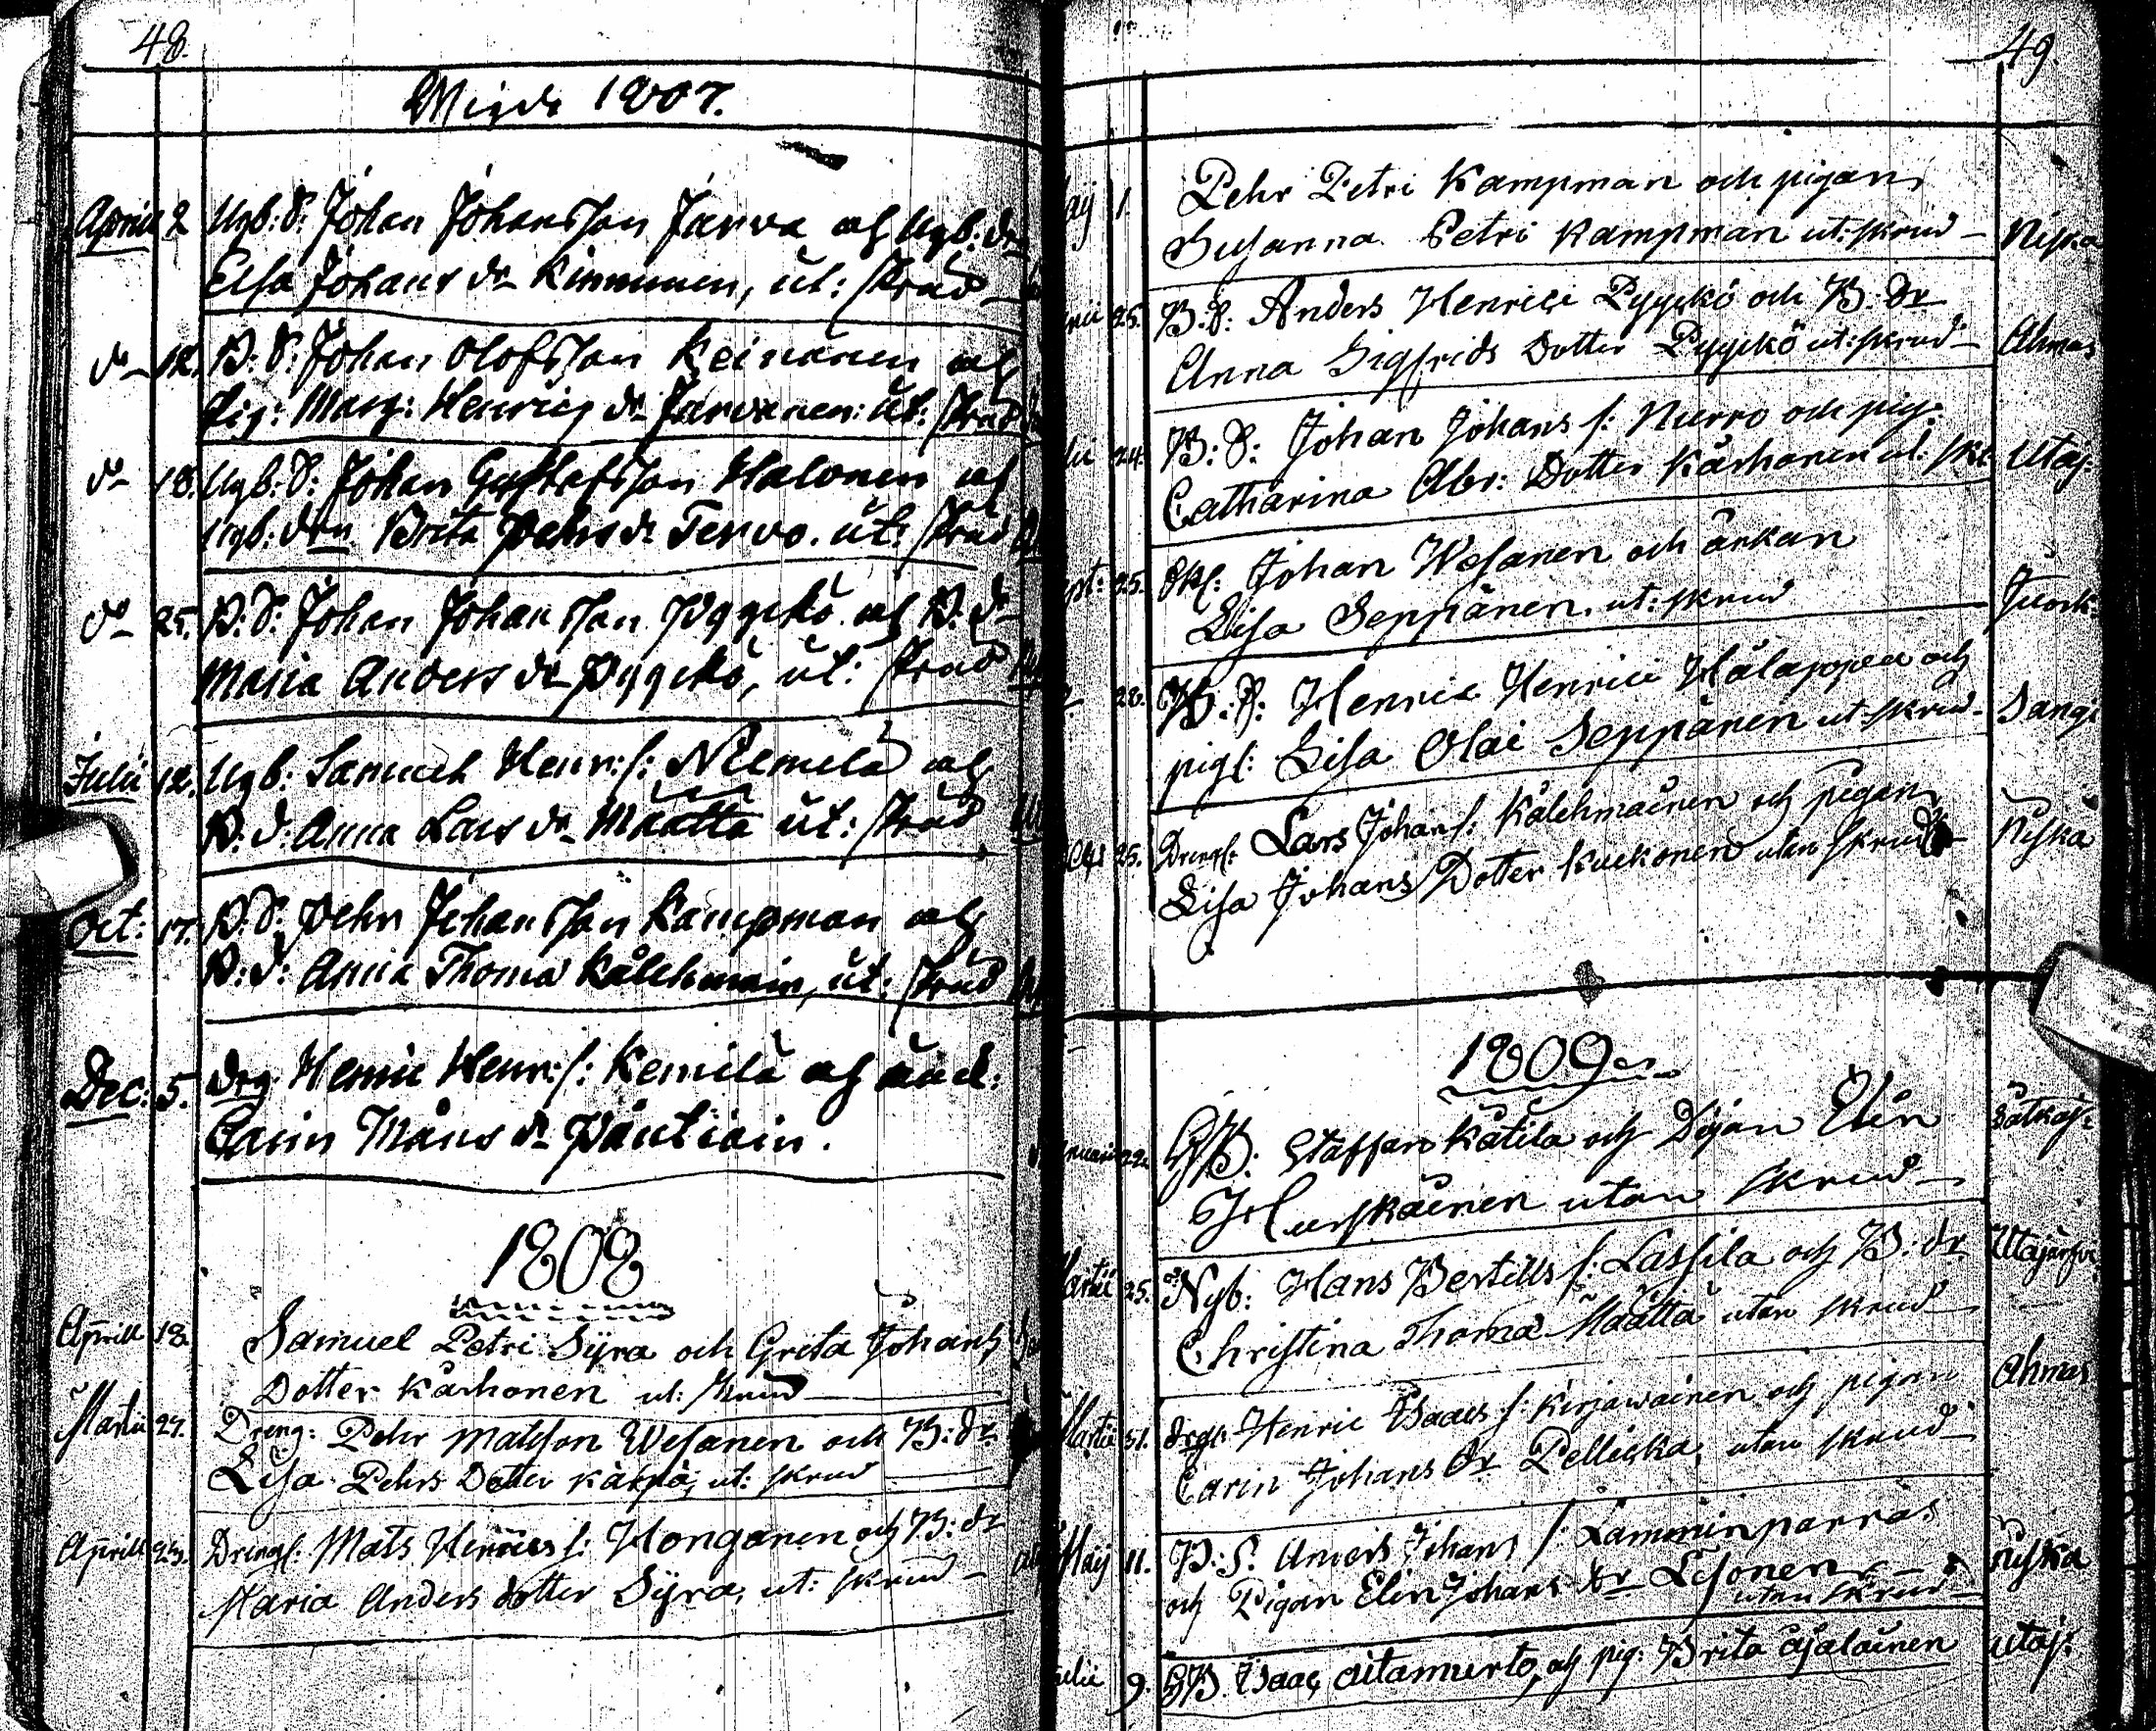 48.
1807.
Aprill 2 Nyb: S: Johan Johansson Jarwa och Nyb: dr
Elsa Johans dr Kinnunen, ut: skrud
do 12. B: S: Johan Olofsson Keinänen och
Pig: Marg: Henrics dr Jarvenen: ut: skrud
do 18. Nyb: S: Johan Gustafsson Halonen och
Nyb: drn Brita Pehrs dr Tervo. ut: skrud
do 25. B: S: Johan Johansson Pyyckö och B: dr
Maria Anders dr Pyyckö, ut: skrud
Julii 12. Nyb: Samuel Henr: s: Niemelä och
B: d: Anna Lars dr Määttä ut: skrud
Oct: 17. B: S: Pehr Johansson Kampman och
B: d: Anna Thoma Kälchmain, ut: skrud
Dec: 5. drg. Henric Henr: s: Kemilä och
Carin Måns dr Päntiäin.
1808
Aprill 18 Samuel Petri Syra och Greta Johans
Dotter Kärhonen ut: skrud
Martii 27. Dreng: Pehr Matsson Wesanen och B: dr
Lisa Pehrs Dotter ut: skrud
Aprill 23. Drengs: Mats Henrics s: Honganen och B: dr
Maria Anders dotter Syra, ut: skrud
49.
1. Pehr Petri Kampman och pigan
Susanna Petri Kampman ut: skrud Niska
25. B: S: Anders Henrici Pyyckö och B: dr
Anna Sigfrids Dotter Pyyckö ut: skrud Ahmas
24. B: S: Johan Johans s: Nurro och pig:
Catharina Abr: Dotter Kärhonen ut: skr Utaj:
25. Johan Wesanen och änkan
Lisa Seppänen. ut: skrud Juork:
28. B: S: Henric Henrici Hälappea och
pigs: Lisa Olai Seppänen ut: skrud Sangi
25. Drengs: Lars Johan s: Kälchmainen och pigan
Lisa Johans Dotter Kuckonen utan skrud Niska
1809
22. Staffan Kätilä och Pigan Elin Sotkaj:
Hurskainen utan skrud
Martii 25. Nyb: Hans Bertills s: Lassila och B: dr Utajärfvi
Christina Thoma Määttä utan skrud
Martii 31. drgs: Henric Isaacs s: Kirjawainen och pigan Ahmas
Carin Johans dr Pellicka, utan skrud
Maij 11. B: S: Anders Johans s: Lämminparras
och Pigan Elin Johans dr Lesonen Niska
utan skrud
9. Isaac Aitamurto, och pig: Brita Ajalainen Utaj: